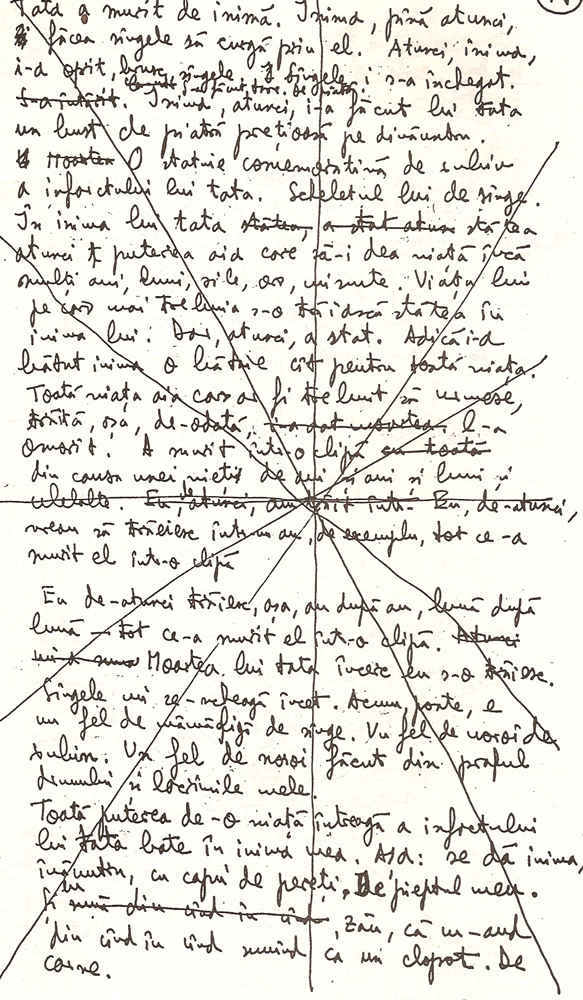 Tata a murit de inimă. Inima, pînă atunci,
făcea sîngele să curgă prin el. Atunci, inima,
i-a oprit, sîngele. Sîngele i s-a închegat.
S-a întărit. Inima, atunci, i-a făcut lui tata
un bust de piatră prețioasă pe dinăuntru.
Moartea O statuie comemorativă de subim
a infarctului lui tata. Scheletul lui de sînge.
În inima lui tata stătea, a stat atunci stătea
atunci puterea aia care să-i dea viață încă
mulți ani, luni, zile, ore, minute. Viața lui
pe care mai trebuia s-o trăiască stătea în
inima lui. Dar, atunci, a stat. Adică i-a
bătut inima o bătaie cît pentru toată viața.
Toată viața aia care ar fi trebuit să urmeze,
trăită, așa, de-odată, i-a dat moartea l-a
omorît. A murit într-o clipă cu toată
din cauza unei vieți de ani și ani și luni și
celelalte. Eu, de atunci, am trăit într- Eu, de-atunci,
vreau să trăiesc într-un an, de exemplu, tot ce-a
murit el într-o clipă
Eu de-atunci trăiesc, așa, an după an, lună după
lună – tot ce-a murit el într-o clipă. Atunci
Moartea lui tata încerc eu s-o trăiesc.
Sîngele mi se-ncheagă încet. Acum, poate, e
un fel de mămăligă de sînge. Un fel de noroi de
subim. Un fel de noroi făcut din praful
drumului și lacrimile mele.
Toată puterea de-o viață întreagă a infarctului
lui tata bate în inima mea. Așa: se dă inima,
înăuntru, cu capul de pereți. De pieptul meu.
și sună din cînd în cînd, zău, că m-aud
din cînd în cînd sunînd ca un clopot. De
carne.